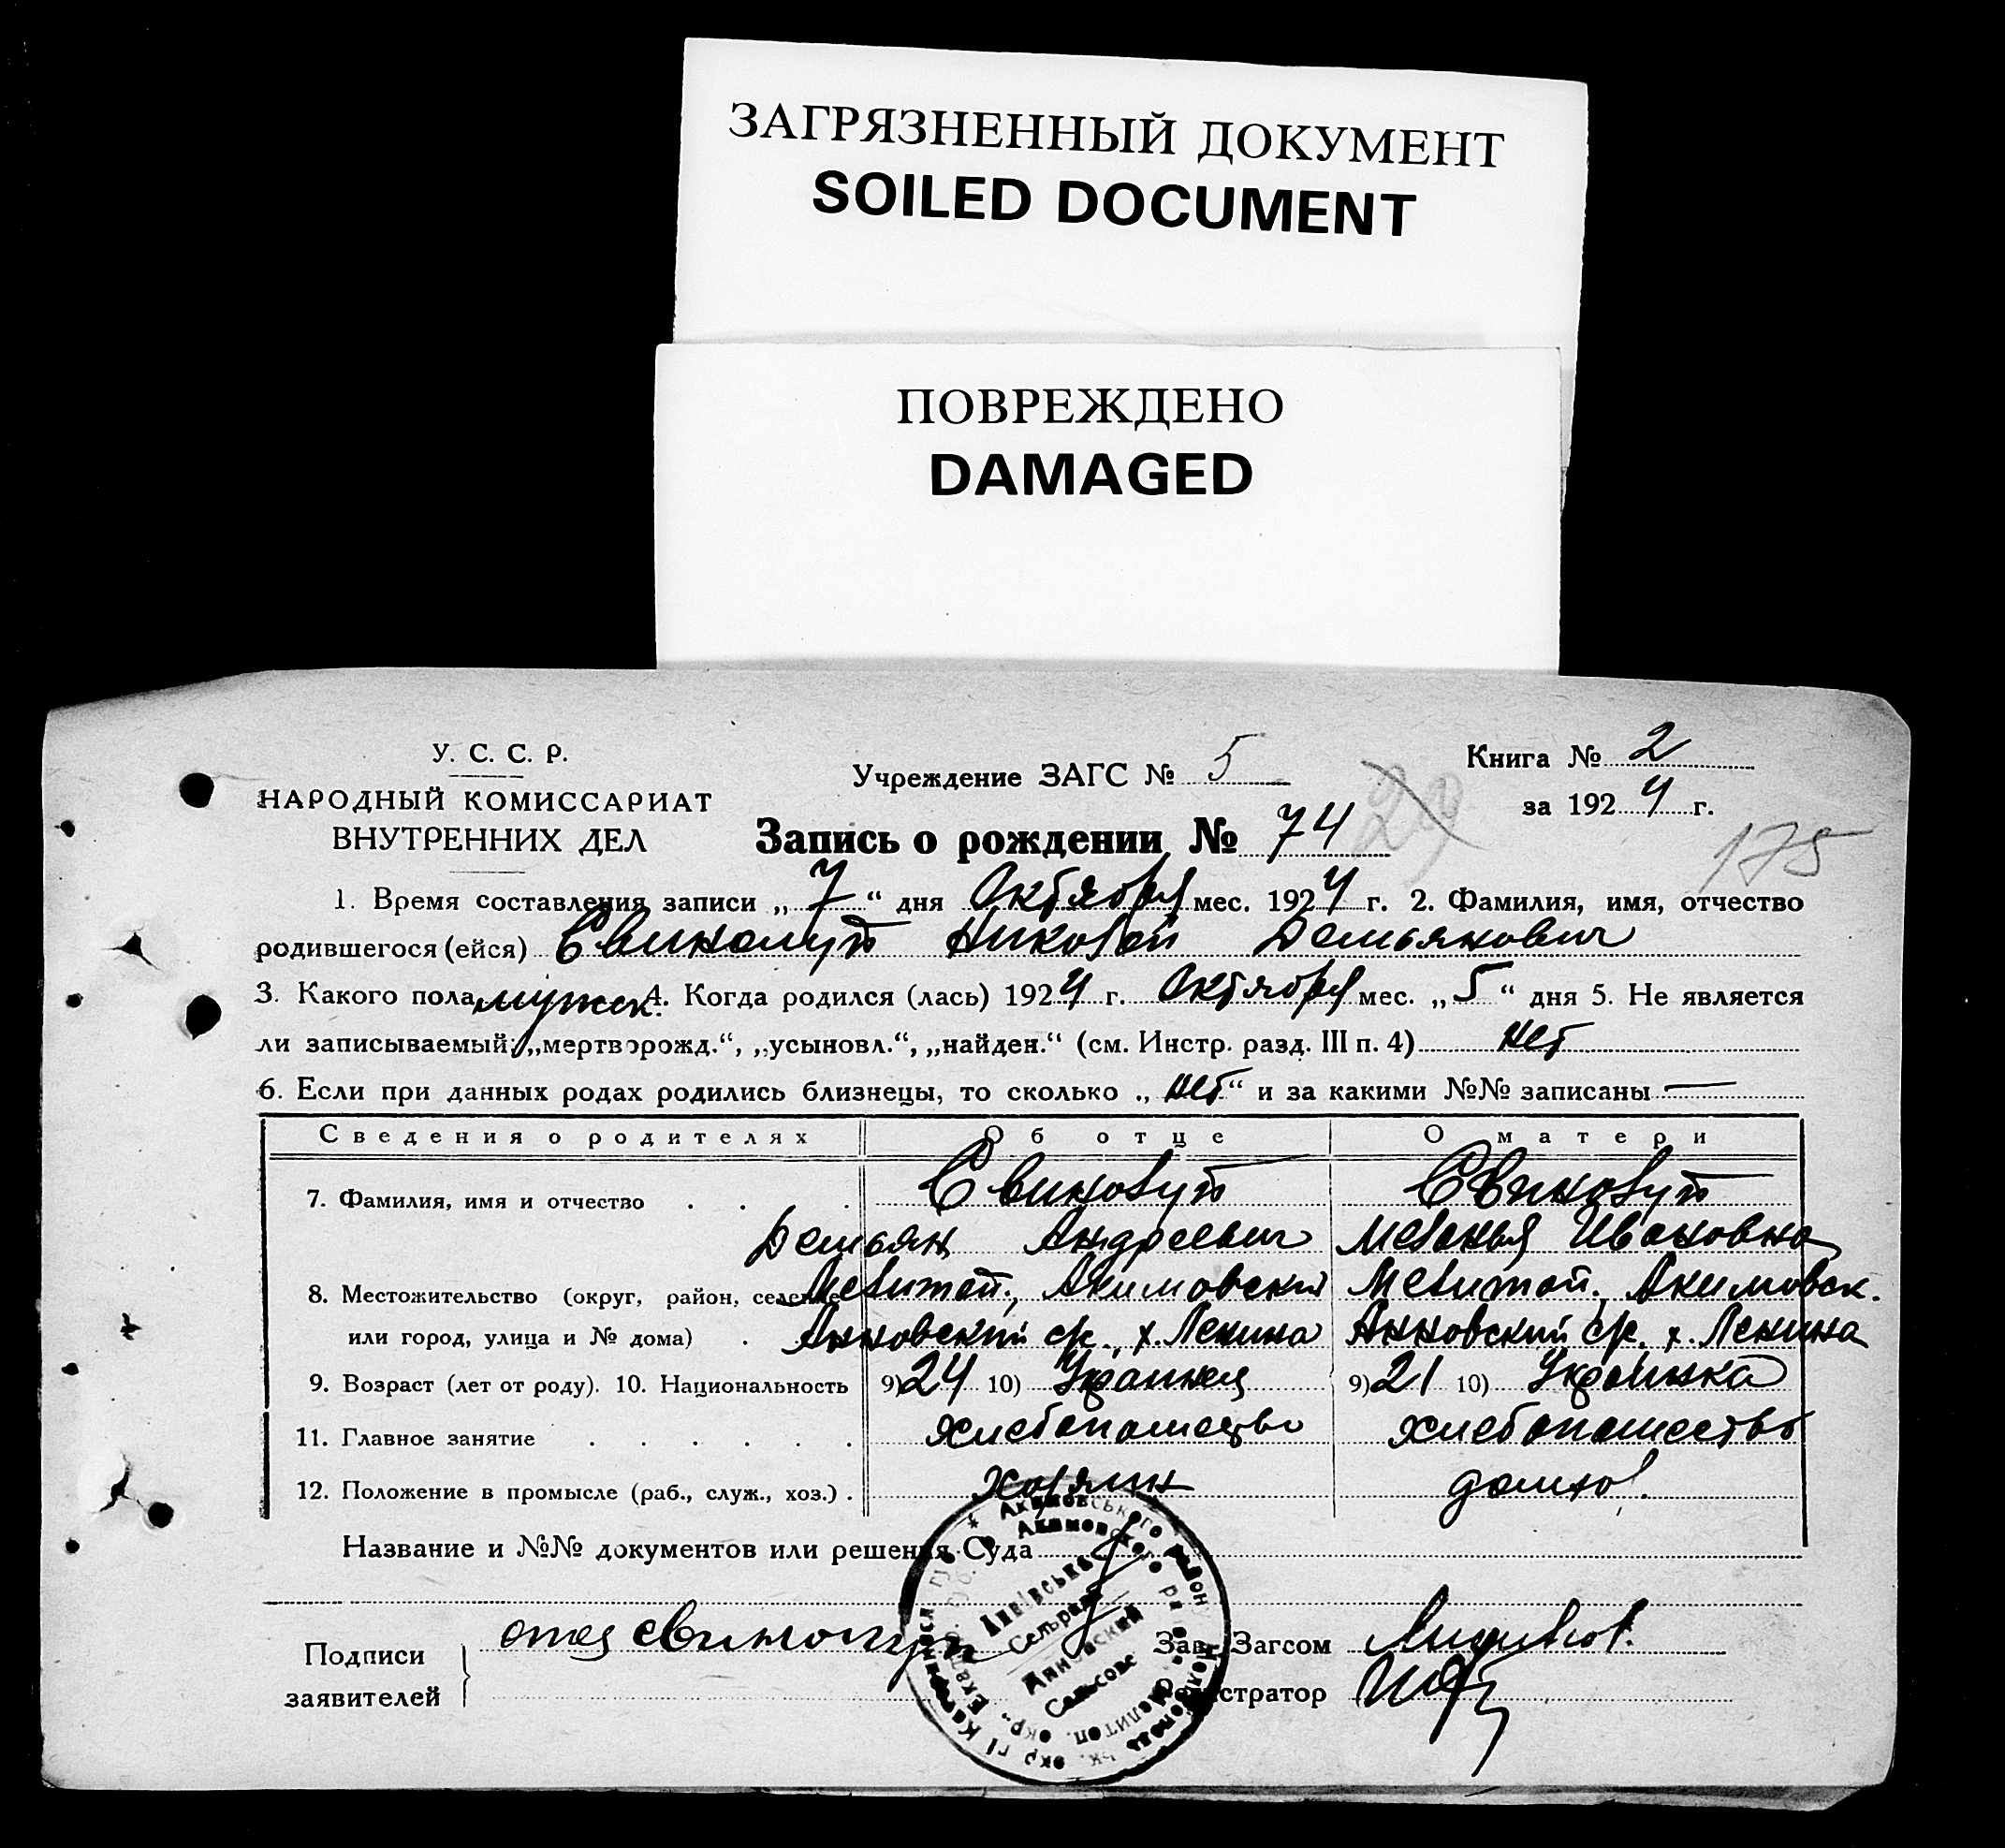 ЗАГРЯЗНЕННЫЙ ДОКУМЕНТ
SOILED DOCUMENT
ПОВРЕЖДЕНО
DAMAGED
У. С. С. Р.
НАРОДНЫЙ КОМИССАРИАТ
ВНУТРЕННИХ ДЕЛ
Учреждение ЗАГС № 5
Книга № 2
за 1924 г.
Запись о рождении № 74
29
175
1. Время составления записи „7“ дня Октября мес. 1924 г. 2. Фамилия, имя, отчество
родившегося (ейся) Свинолуп Николай Демьянович
3. Какого пола мужск. 4. Когда родился (лась) 1924 г. Октября мес. „5“ дня 5. Не является
ли записываемый: „мертворожд.“, „усыновл.“, „найден.“ (см. Инстр. разд. III п. 4) нет
6. Если при данных родах родились близнецы, то сколько „нет“ и за какими №№ записаны —
Сведения о родителях Об отце О матери
7. Фамилия, имя и отчество . . . Свинолуп Свинолуп
Демьян Андреевич Меланья Ивановна
8. Местожительство (округ, район, селение Мелитоп., Акимовский Мелитоп., Акимовск.
или город, улица и № дома) . Анновский с/с., х. Ленина Анновский с/с. х. Ленина
9. Возраст (лет от роду). 10. Национальность 9) 24 10) Украинец 9) 21 10) Украинка
11. Главное занятие . . . . . . хлебопашество хлебопашество
12. Положение в промысле (раб., служ., хоз.) . хозяин домхоз.
Название и №№ документов или решения Суда
Подписи
заявителей
отец Свинолуп
Зав. Загсом
Регистратор
Акимовського району
Акимовского
Аннівська
Сельрада
Анновский
Сельсовет